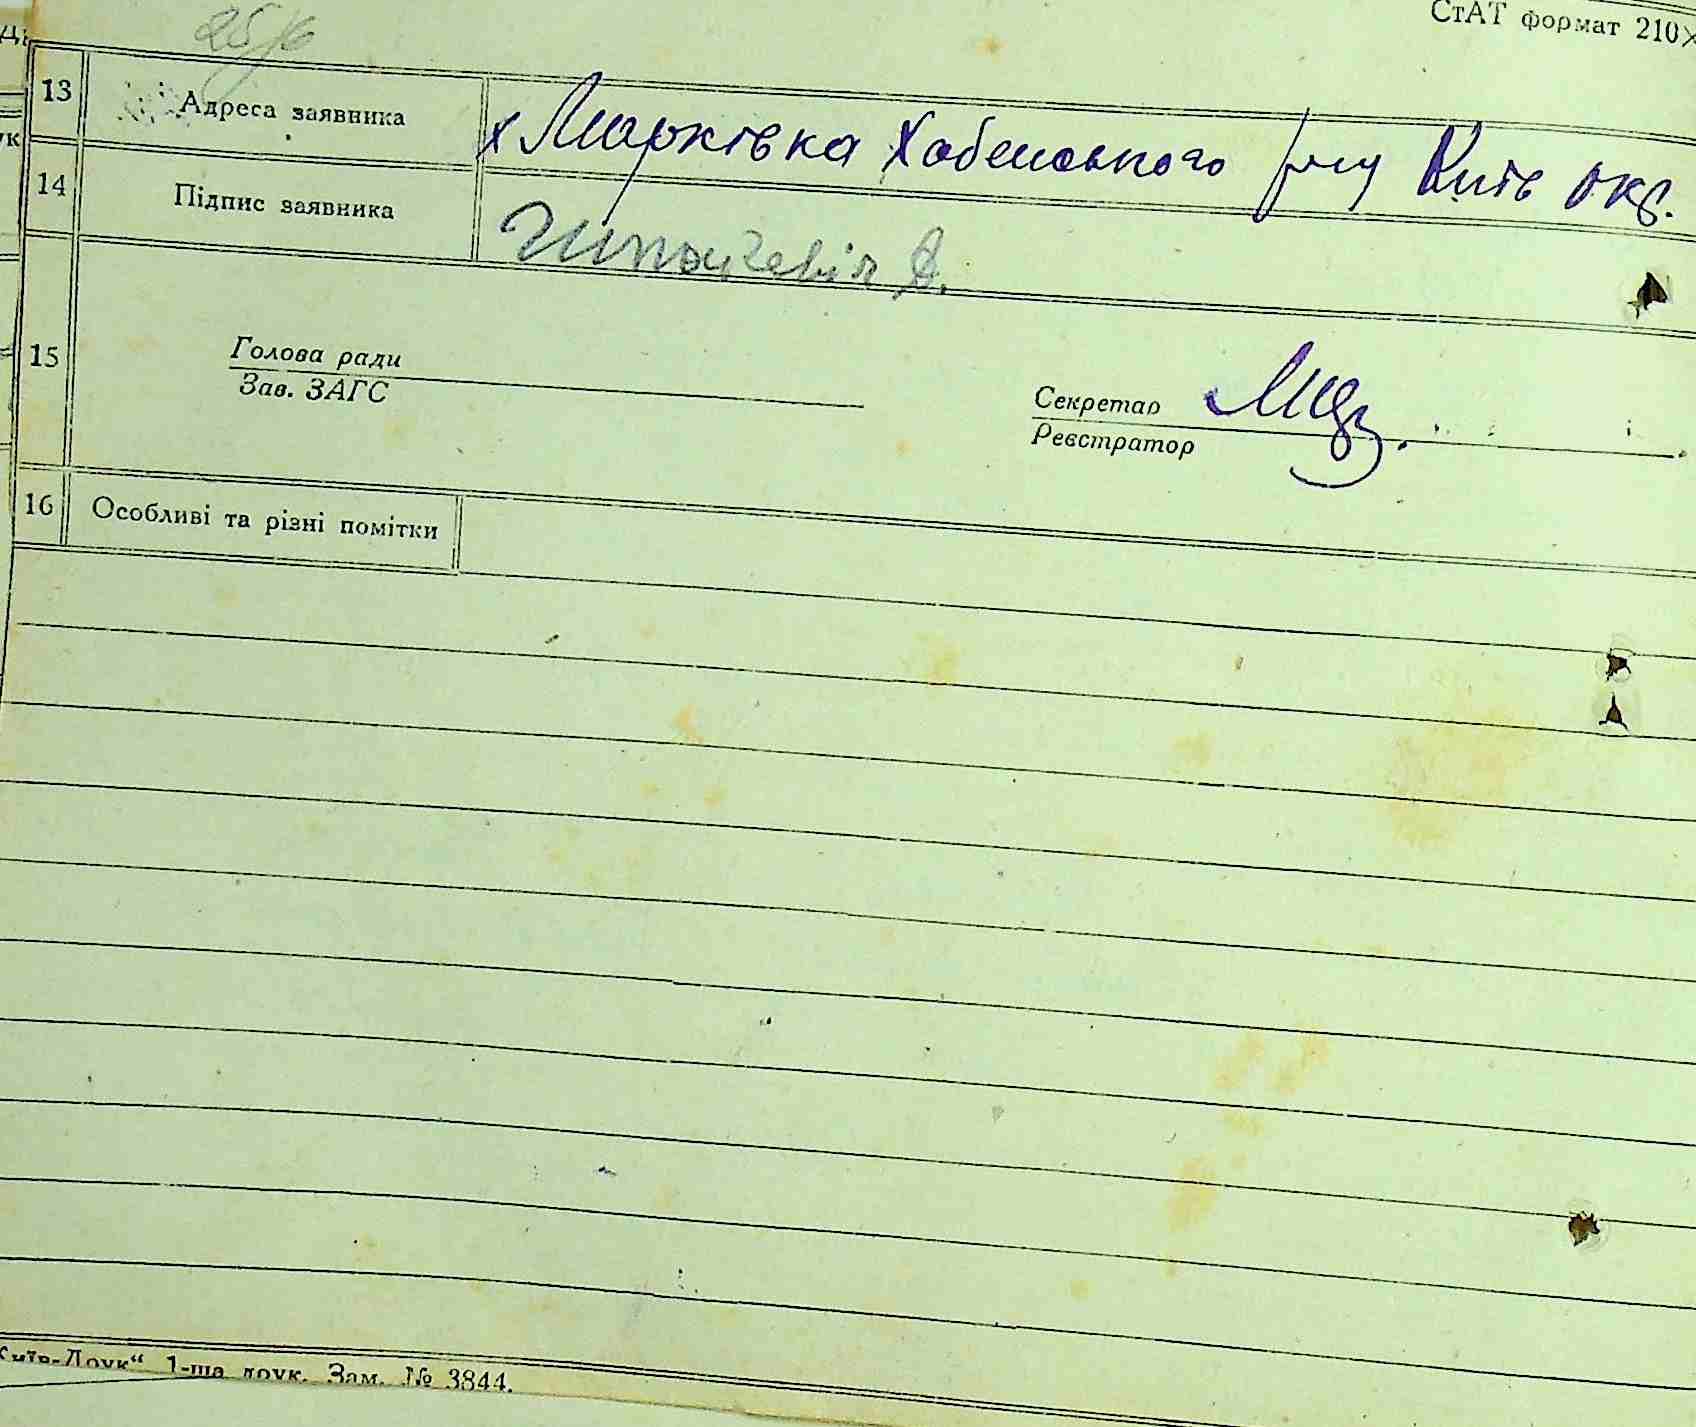 СтАТ формат 210×
25/6
13 Адреса заявника х Марківка Хабенського р-ну Київ окр.
14 Підпис заявника
15 Голова ради
Зав. ЗАГС
Секретар
Реєстратор
16 Особливі та різні помітки
Київ-Друк“ 1-ша друк. Зам. № 3844.